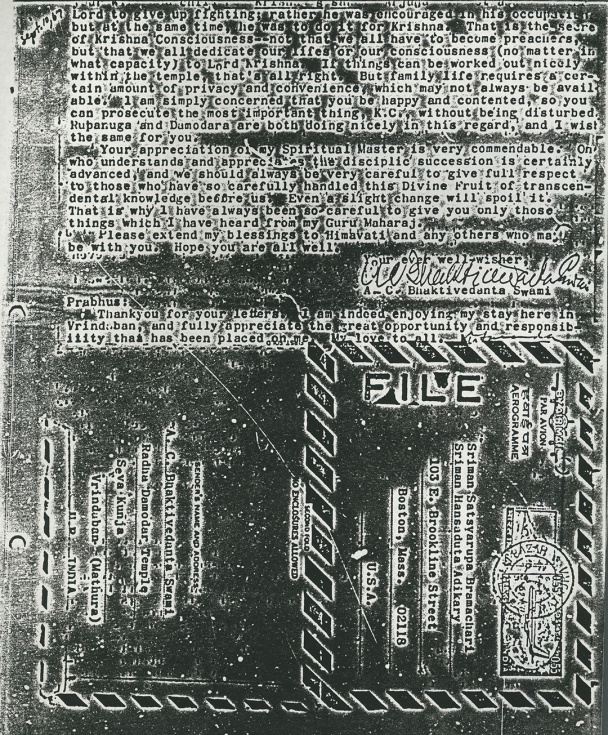 Sept. 1967
Lord to give up fighting; rather he was encouraged in his occupation
but at the same time, he was to do it for Krishna. That is the secre
of Krishna Consciousness--not that we all have to become preachers,
but that we all dedicate our lifes or our consciousness (no matter in
what capacity) to Lord Krishna. If things can be worked out nicely
within the temple, that's all right. But family life requires a cer-
tain amount of privacy and convenience, which may not always be avail
able. I am simply concerned that you be happy and contented, so you
can prosecute the most important thing, K.C., without being disturbed
Rupanuga and Damodara are both doing nicely in this regard, and I wish
the same for you.
Your appreciation my Spiritual Master is very commendable. On
who understands and appreciates the disciplic succession is certainly
advanced, and we should always be very careful to give full respect
to those who have so carefully handled this Divine Fruit of transcen-
dental knowledge before us. Even a slight change will spoil it.
That is why I have always been so careful to give you only those
things which I have heard from my Guru Maharaj.
Please extend my blessings to Himavati and any others who may
be with you. Hope you are all well.
Your ever well-wisher,
A. C. Bhaktivedanta Swami
Prabhus:
Thankyou for your letters. I am indeed enjoying my stay here in
Vrindaban, and fully appreciate the great opportunity and responsib-
ility that has been placed on me. My love to all.
FILE
हवाई पत्र
PAR AVION
AEROGRAMME
Sriman Satsvarupa Bramachari
Sriman Hansaduta Adikary
103 E. Brookline Street
Boston, Mass. 02118
U.S.A.
SECOND FOLD
NO ENCLOSURES ALLOWED
SENDER'S NAME AND ADDRESS:
A. C. Bhaktivedanta Swami
Radha Damodar Temple
Seva Kunja
Vrindaban (Mathura)
U.P. INDIA